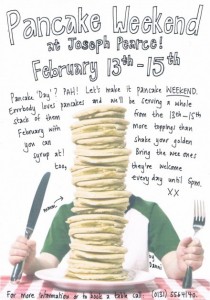 Pancake Weekend
at Joseph Pearce!
February 13th-15th
Pancake 'Day'? PAH! Let's make it pancake WEEKEND.
Everybody loves pancakes and we'll be serving a whole
stack of them from the 13th-15th
February with more toppings than
you can shake your golden
syrup at! Bring the wee ones
too, they're welcome
every day until 6pm.
XX
For more information or to book a table call: (0131) 5564140.